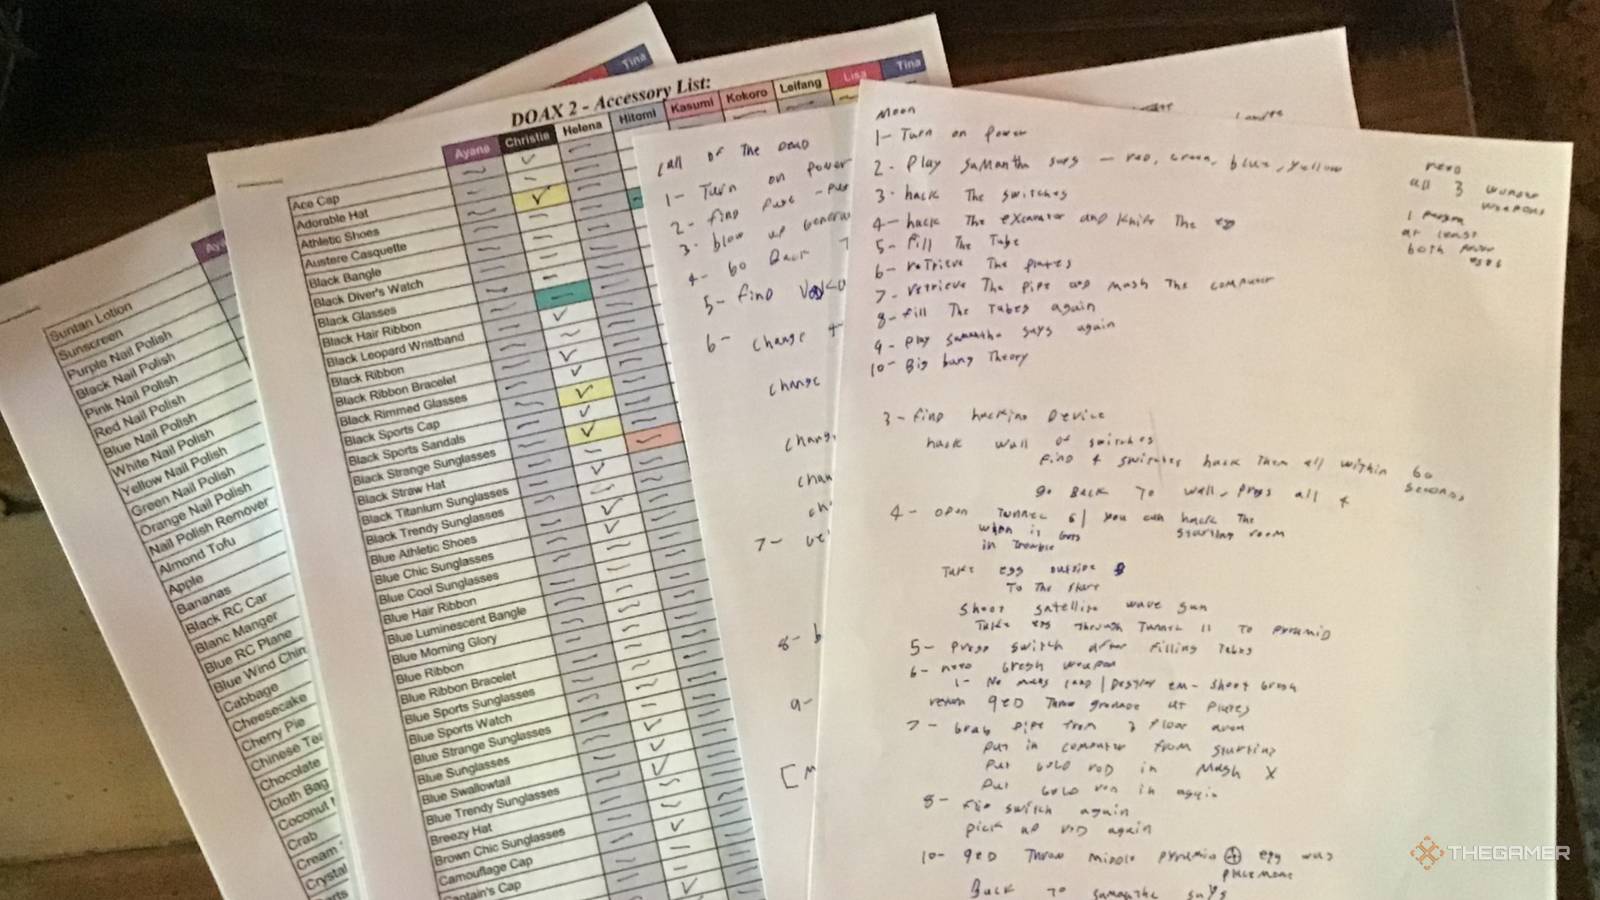 Tina
DOAX 2 - Accessory List:
Ayane Christie Helena Hitomi Kasumi Kokoro Leifang Lisa Tina
Ace Cap
Adorable Hat
Athletic Shoes
Austere Casquette
Black Bangle
Black Diver's Watch
Black Glasses
Black Hair Ribbon
Black Leopard Wristband
Black Ribbon
Black Ribbon Bracelet
Black Rimmed Glasses
Black Sports Cap
Black Sports Sandals
Black Strange Sunglasses
Black Straw Hat
Black Titanium Sunglasses
Black Trendy Sunglasses
Blue Athletic Shoes
Blue Chic Sunglasses
Blue Cool Sunglasses
Blue Hair Ribbon
Blue Luminescent Bangle
Blue Morning Glory
Blue Ribbon
Blue Ribbon Bracelet
Blue Sports Sunglasses
Blue Sports Watch
Blue Strange Sunglasses
Blue Sunglasses
Blue Swallowtail
Blue Trendy Sunglasses
Breezy Hat
Brown Chic Sunglasses
Camouflage Cap
Captain's Cap
Suntan Lotion
Sunscreen
Purple Nail Polish
Black Nail Polish
Pink Nail Polish
Red Nail Polish
Blue Nail Polish
White Nail Polish
Yellow Nail Polish
Green Nail Polish
Orange Nail Polish
Nail Polish Remover
Almond Tofu
Apple
Bananas
Black RC Car
Blanc Manger
Blue RC Plane
Blue Wind Chim
Cabbage
Cheesecake
Cherry Pie
Chinese Tea
Chocolate
Cloth Bag
Coconut
Crab
Cream
Crystal
Call of The Dead
1- Turn on power
2- find fuse
3- blow up genera
4- Go Back
5- find
6- change
change
7-
8-
9-
Moon
1- Turn on power
2- Play Samantha says - red, green, blue, yellow
3- hack The switches
4- hack The excavator and knife The egg
5- fill The Tube
6- retrieve The plates
7- retrieve The pipe and mash The computer
8- fill The Tubes again
9- Play Samantha says again
10- Big bang Theory
need
all 3 wonder
weapons
1 person
at least
both power
3- find hacking Device
hack wall of switches
find 4 switches hack Them all within 60
seconds
go Back To wall, press all 4
4- open Tunnel 6 / you can hack The
when it gets starting room
in Trouble
Take egg outside
To The
Shoot satellite wave gun
Take egg Through Tunnel 11 To pyramid
5- press switch after filling Tubes
6- need Gresh weapon
1- No
return QED Throw grenade at plates
7- Grab pipe from 3 floor
put in computer from starting
put Gold rod in Mash X
put Gold rod in again
8- flip switch again
pick up rod again
10- QED Throw middle pyramid egg was
placement
Back To Samantha says
THEGAMER